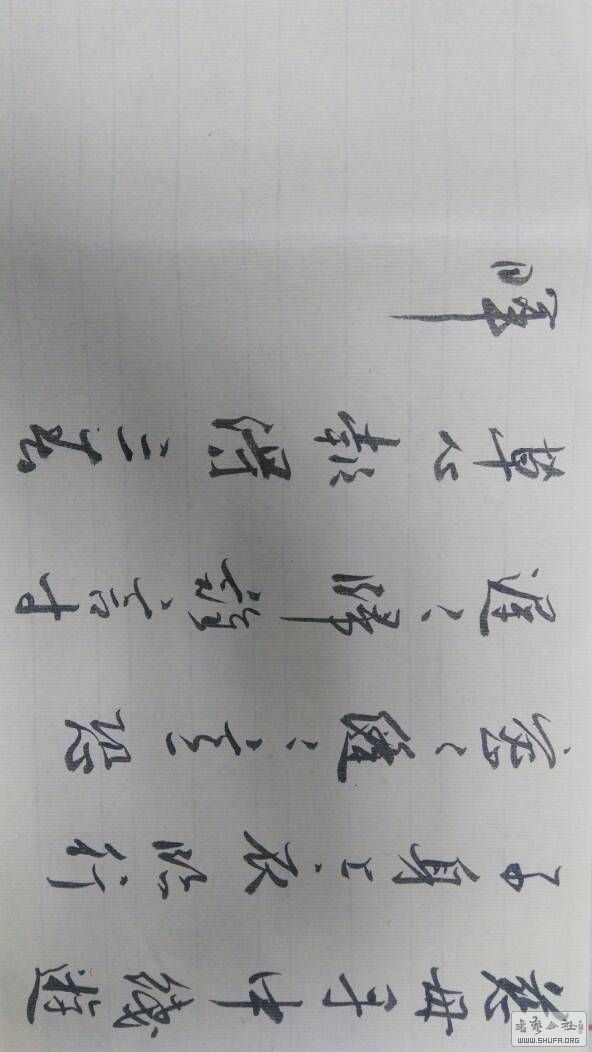 慈母手中綫遊
子身上衣臨行
密密縫意恐
遲遲歸誰言寸
草心報得三春
暉
書藝公社
WWW.SHUFA.ORG